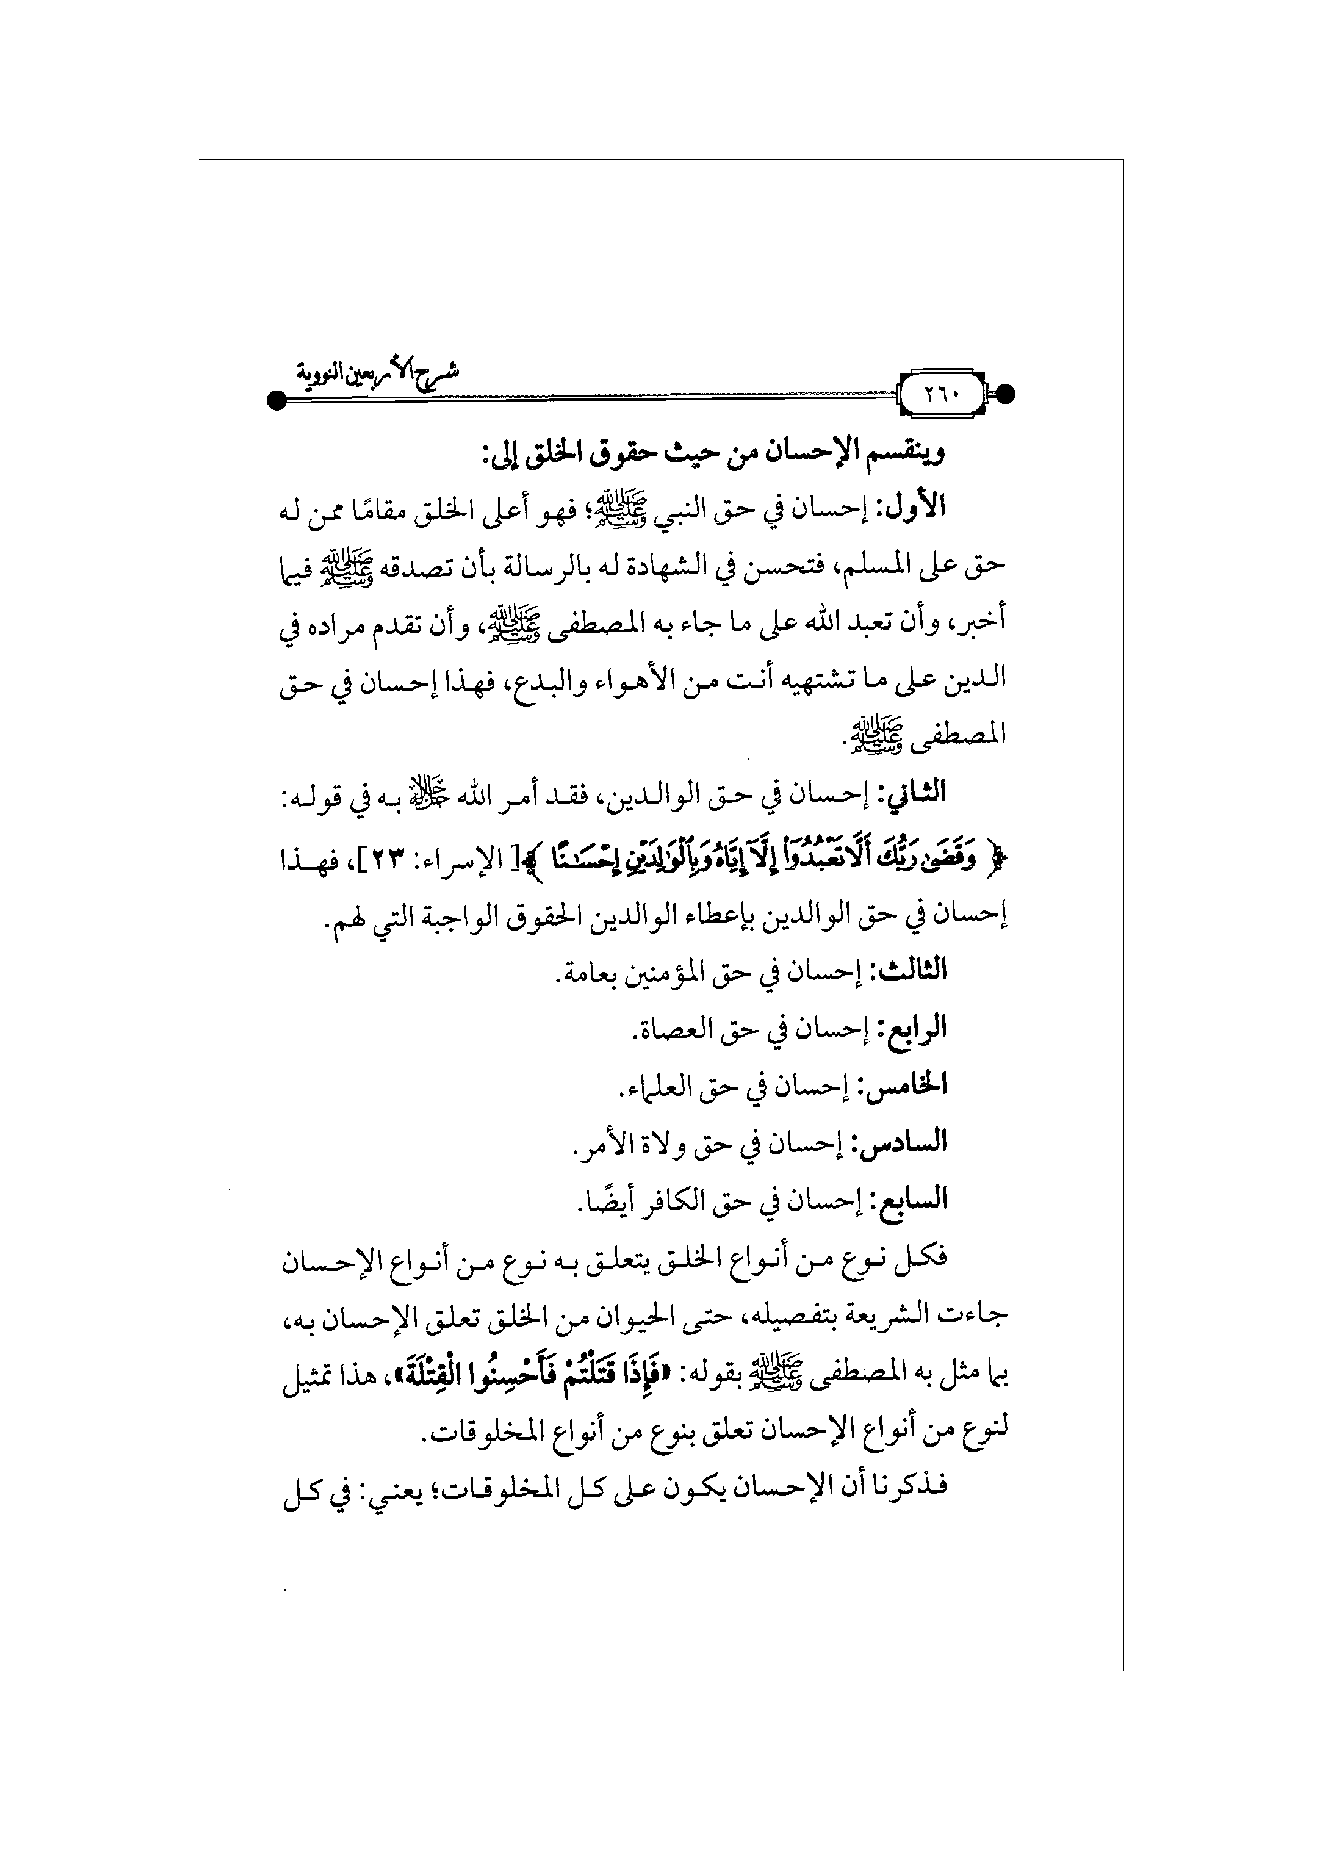 شرح الأربعين النووية
٢٦٠
وينقسم الإحسان من حيث حقوق الخلق إلى:
الأول: إحسان في حق النبي ﷺ؛ فهو أعلى الخلق مقامًا ممن له
حق على المسلم، فتحسن في الشهادة له بالرسالة بأن تصدقه ﷺ فيما
أخبر، وأن تعبد الله على ما جاء به المصطفى ﷺ، وأن تقدم مراده في
الدين على ما تشتهيه أنت من الأهواء والبدع، فهذا إحسان في حق
المصطفى ﷺ.
الثاني: إحسان في حق الوالدين، فقد أمر الله ﷻ به في قوله:
﴿ وَقَضَىٰ رَبُّكَ أَلَّا تَعْبُدُوٓا۟ إِلَّآ إِيَّاهُ وَبِٱلْوَٰلِدَيْنِ إِحْسَـٰنًا ﴾[الإسراء: ٢٣]، فهذا
إحسان في حق الوالدين بإعطاء الوالدين الحقوق الواجبة التي لهم.
الثالث: إحسان في حق المؤمنين بعامة.
الرابع: إحسان في حق العصاة.
الخامس: إحسان في حق العلماء.
السادس: إحسان في حق ولاة الأمر.
السابع: إحسان في حق الكافر أيضًا.
فكل نوع من أنواع الخلق يتعلق به نوع من أنواع الإحسان
جاءت الشريعة بتفصيله، حتى الحيوان من الخلق تعلق الإحسان به،
بما مثل به المصطفى ﷺ بقوله: «فَإِذَا قَتَلْتُمْ فَأَحْسِنُوا الْقِتْلَةَ»، هذا تمثيل
لنوع من أنواع الإحسان تعلق بنوع من أنواع المخلوقات.
فذكرنا أن الإحسان يكون على كل المخلوقات؛ يعني: في كل